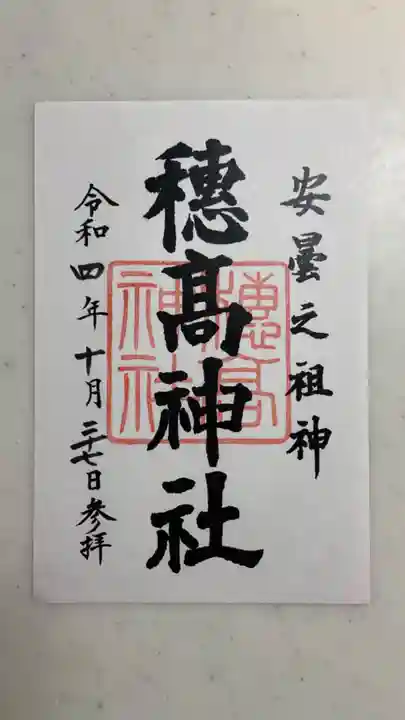 安曇之祖神
穂髙神社
穂髙神社
令和四年十月二十七日参拝